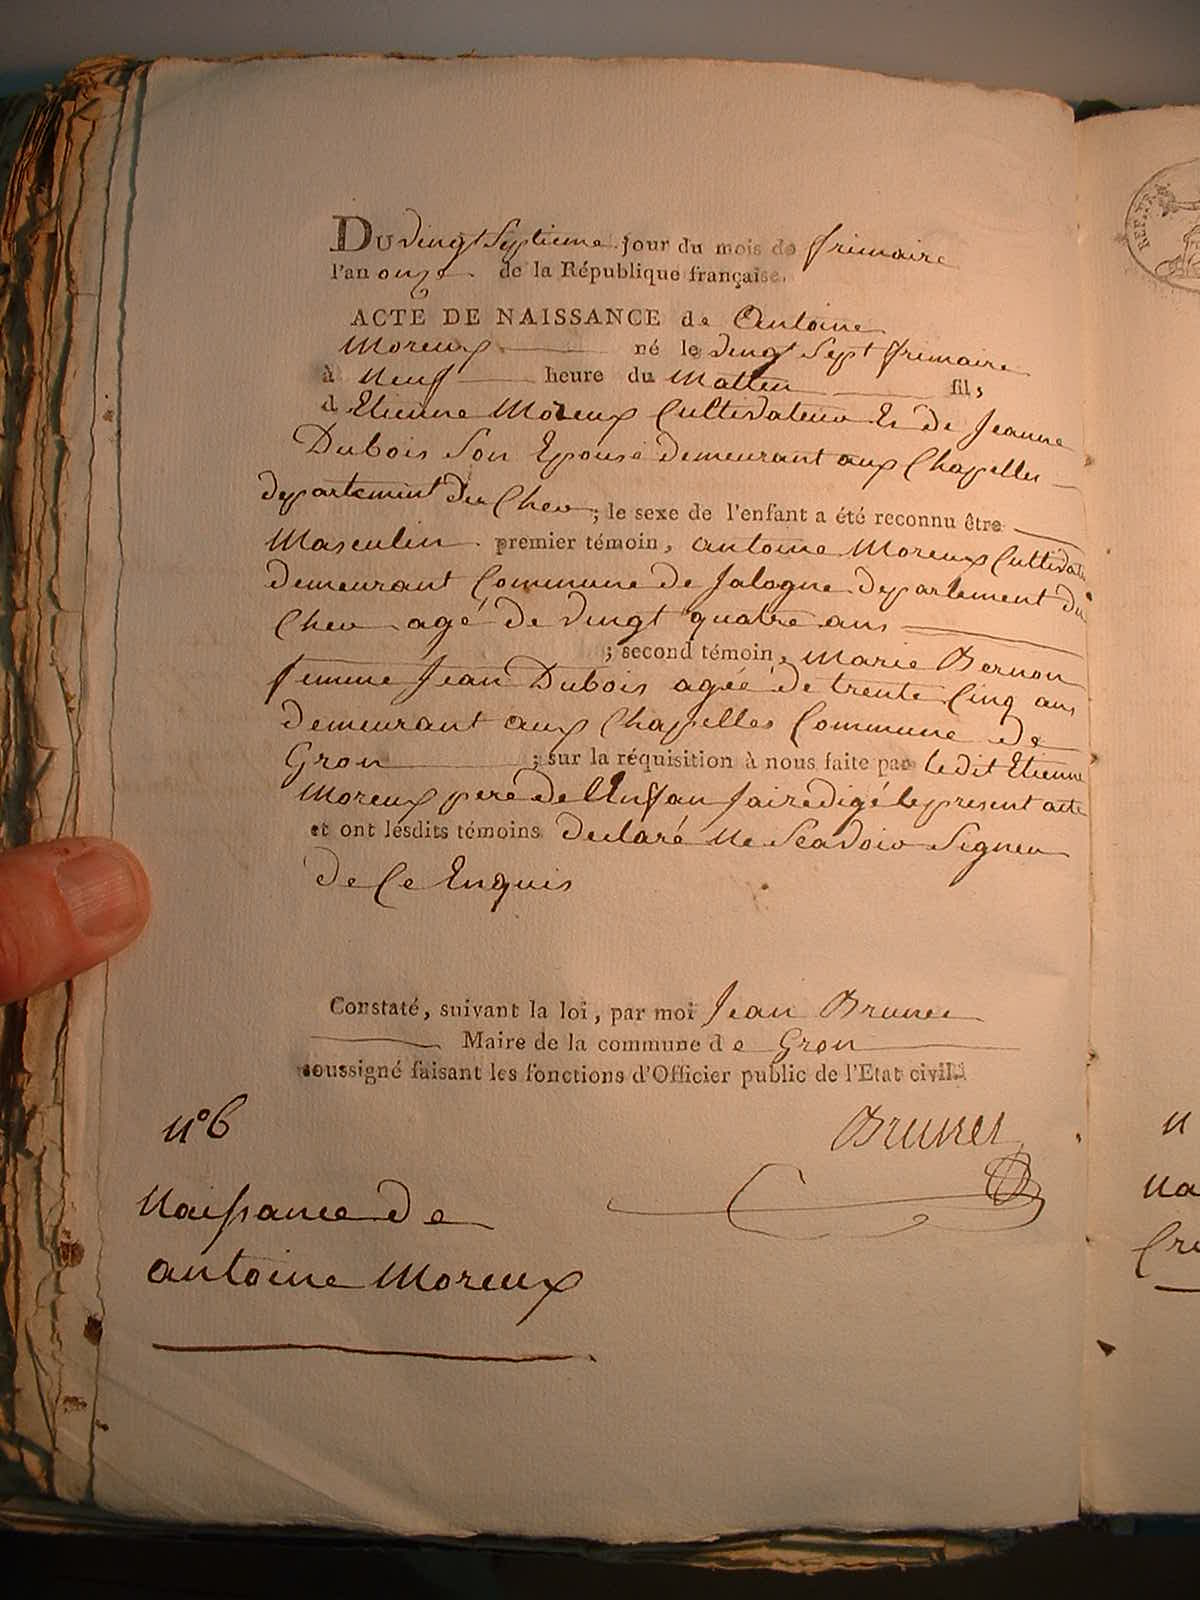 Du vingt Septieme jour du mois de frimaire
l'an onze de la République française.
ACTE DE NAISSANCE de Antoine
Moreux né le vingt Sept frimaire
à Neuf heure du Matten fils
d Etienne Moreux Cultivateur Et de Jeanne
Dubois Son Epouse demeurant aux Chapelles
departement du Cher ; le sexe de l'enfant a été reconnu être
Masculin premier témoin, antoine Moreux Cultivat
demeurant Commune de Jalogne departement du
Cher agé de vingt quatre ans
; second témoin, Marie Bernon
femme Jean Dubois agée de trente Cinq ans
demeurant aux Chapelles Commune de
Gron ; sur la réquisition à nous faite par ledit Etienne
Moreux pere de l'Enfan faire digé le present acte
et ont lesdits témoins declaré Ne Scavoir Signer
de Ce Enquis
Constaté, suivant la loi, par moi Jean Brunet
Maire de la commune de Gron
soussigné faisant les fonctions d'Officier public de l'Etat civil.
n° 6
Brunet
Naissance de
antoine Moreux
REP. FRA
n
Na
Cre